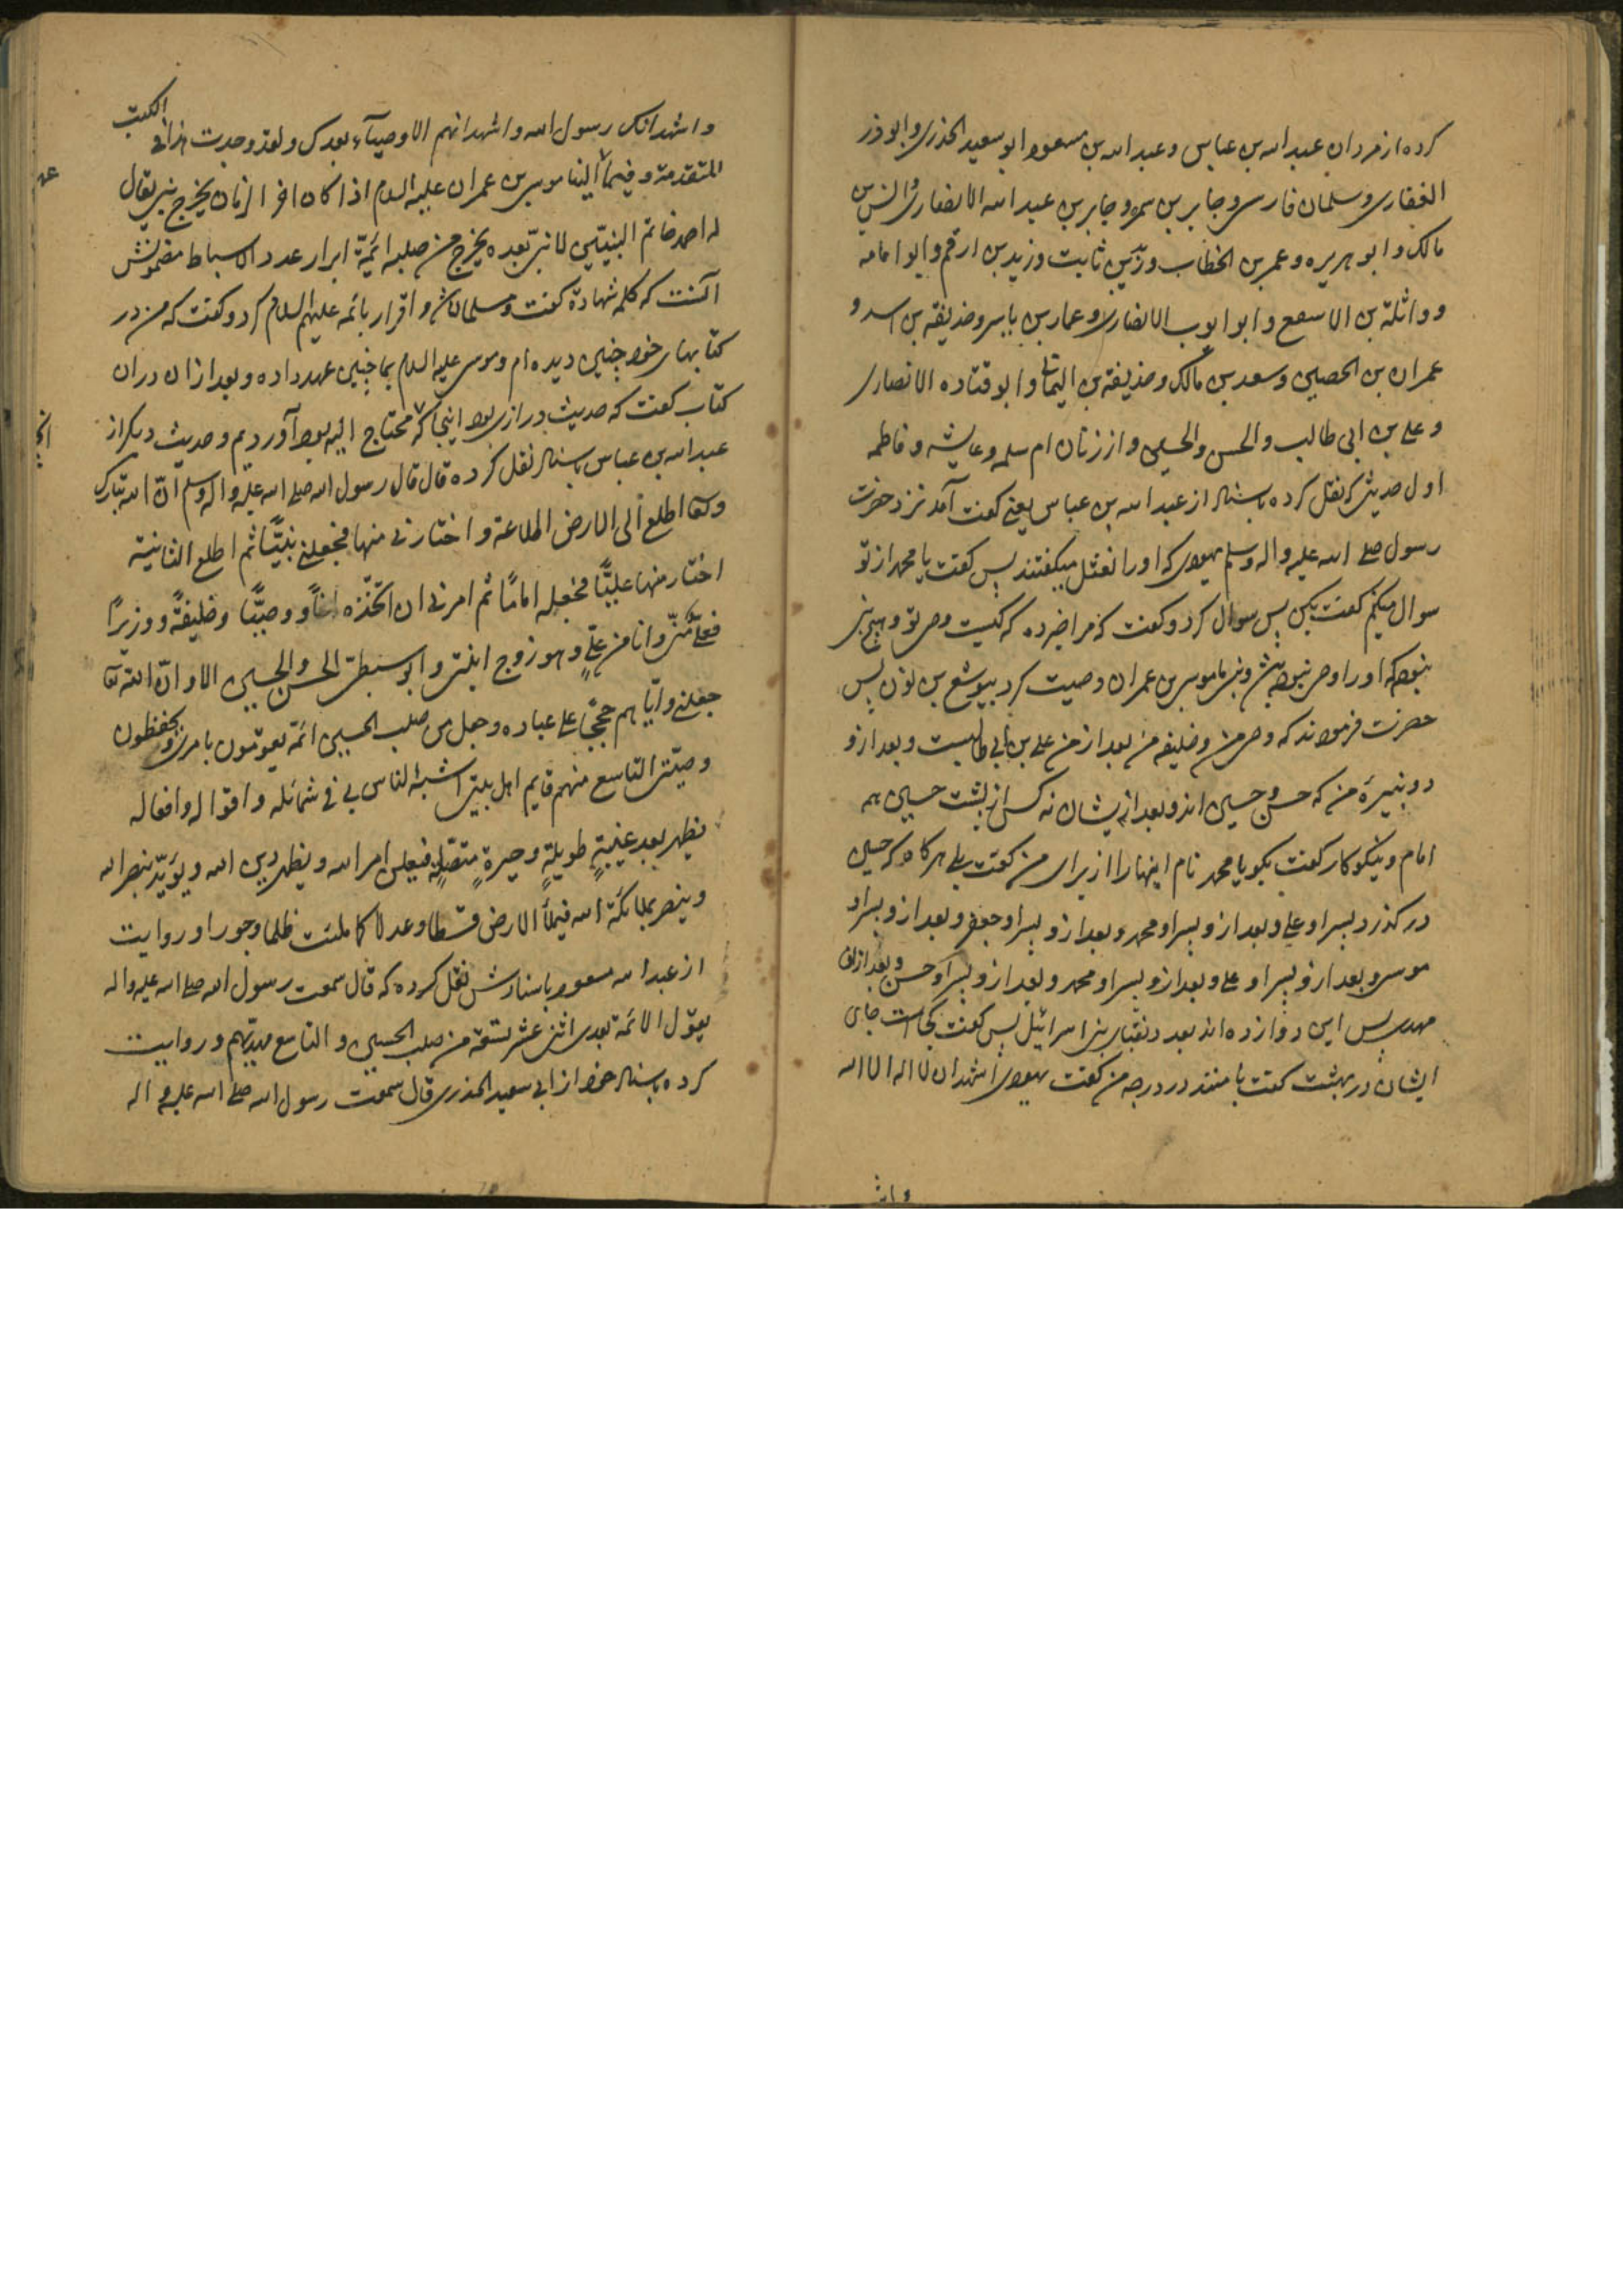 کرده از مردان عبد الله بن عباس و عبد الله بن مسعود ابو سعید الخدری و ابوذر
الغفاری و سلمان فارسی و جابر بن سمره و جابر بن عبد الله الانصاری و انس بن
مالک و ابو هریره و عمر بن الخطاب و زید بن ثابت و زید بن ارقم و ابو امامه
و واثلة بن الاسقع و ابو ایوب الانصاری و عمار بن یاسر و حذیفة بن اسد و
عمران بن الحصین و سعد بن مالک و حذیفة بن الیمان و ابو قتاده الانصاری
و علی بن ابی طالب و الحسن و الحسین و از زنان ام سلمه و عایشه و فاطمه
اول حدیثی که نقل کرده باسناد از عبد الله بن عباس یعنی گفت آمد نزد حضرت
رسول صلی الله علیه واله وسلم یهودی که او را نعثل میگفتند پس گفت یا محمد از تو
سوال میکنم گفت بکن پس سوال کرد و گفت که مرا خبر ده که کیست وصی تو و هیچ نبی
نبود که او را وصی نبود پیش و نبی ما موسی بن عمران وصیت کرد بیوشع بن نون پس
حضرت فرمودند که وصی من و خلیفه من بعد از من علی بن ابی طالبست و بعد ازو
دو نبیرهٔ من که حسن و حسین اند و بعد از یشان نه کس از پشت حسین همه
امام و نیکوکار گفت بگو یا محمد نام اینها را از برای من گفت بلی هر کاه که حسین
درگذرد پسر او علی و بعد ازو پسر او محمد و بعد ازو پسر او جعفر و بعد ازو پسر او
موسی و بعد ازو پسر او علی و بعد ازو پسر او محمد و بعد ازو پسر او حسن و بعد ازان
مهدی پس این دوازده اند بعدد نقبای بنی اسرائیل پس گفت کجاست جای
ایشان در بهشت گفت با منند در درجه من گفت یهودی اشهد ان لا اله الا الله
و اش
و اشهد انک رسول الله و اشهد انهم الاوصیاء بعدک و لقد وجدت هذا فی الکتب
المتقدمة و فیما الینا موسی بن عمران علیه السلام اذا کان اخر الزمان یخرج نبی یقال
له احمد خاتم النبیین لا نبی بعده یخرج من صلبه ائمة ابرار عدد الاسباط مضمونش
آنست که کلمه شهادة گفت و مسلمان شد و اقرار بائمه علیهم السلام کرد و گفت که من در
کتابهای خود چنین دیده ام و موسی علیه السلام بما چنین عهد داده و بعد ازان دران
کتاب گفت که حدیث درازی بود اینجا که محتاج الیه بود آوردیم و حدیث دیگر از
عبد الله بن عباس باسناد نقل کرده قال قال رسول الله صلی الله علیه واله وسلم ان الله تبارک
و تعا اطلع الی الارض اطلاعة و اختارنی منها فجعلنی نبیّاً ثم اطلع الثانیة
اختار منها علیّاً فجعله اماماً ثم امرنی ان اتخذه اخاً و وصیّاً و خلیفةً و وزیراً
فعلیّ منّی و انا من علیّ و هو زوج ابنتی و ابو سبطی الحسن و الحسین الا و انّ الله تعا
جعلنی و ایّاهم حججاً علی عباده و جعل من صلب الحسین ائمة یقومون بامری و یحفظون
وصیّتی التاسع منهم قایم اهل بیتی اشبه الناس بی فی شمائله و اقواله و افعاله
یظهر بعد غیبةٍ طویلةٍ و حیرةٍ متصلةٍ فیعلن امر الله و یظهر دین الله و یؤیّد بنصر الله
و ینصر بملائکة الله فیملأ الارض قسطا و عدلا کما ملئت ظلما و جورا و روایت
از عبد الله مسعود باسنادش نقل کرده که قال سمعت رسول الله صلی الله علیه واله
یقول الائمة بعدی اثنی عشر تسعة من صلب الحسین و التاسع مهدیهم و روایت
کرده باسناد خود از ابی سعید الخدری قال سمعت رسول الله صلی الله علیه و اله